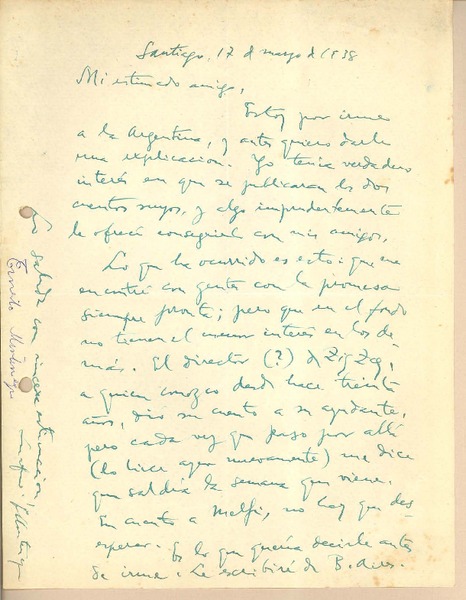 Santiago, 17 de marzo de 1938
Mi estimado amigo,
Estoy por irme
a la Argentina, y antes quiero darle
una explicación. Yo tenía verdadero
interés en que se publicaran los dos
cuentos suyos, y algo imprudentemente
le ofrecí conseguirlo con mis amigos.
Lo que ha ocurrido es esto: que me
encontré con gentes con la promesa
siempre pronta; pero que en el fondo
no tienen el menor interés en los de-
más. El director (?) de Zig Zag,
a quien conozco desde hace treinta
años, dio su cuento a su ayudante,
pero cada vez que paso por allí
(lo hice ayer nuevamente) me dice
que saldrá la semana que viene.
En cuanto a Melfi, no hay que des-
esperar. Es lo que quería decirle antes
de irme. Le escribiré de B. Aires.
Lo saluda con sincera estimación
Ernesto Montenegro